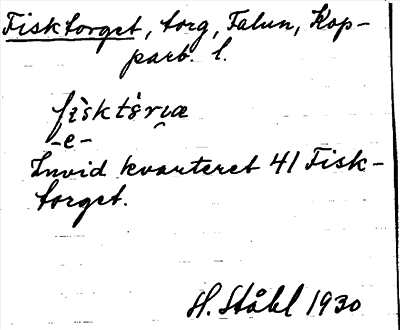 Fisktorget, torg, Falun, Kop-
parb. l.
-e-
Invid kvarteret 41 Fisk-
torget.
H. Ståhl 1930